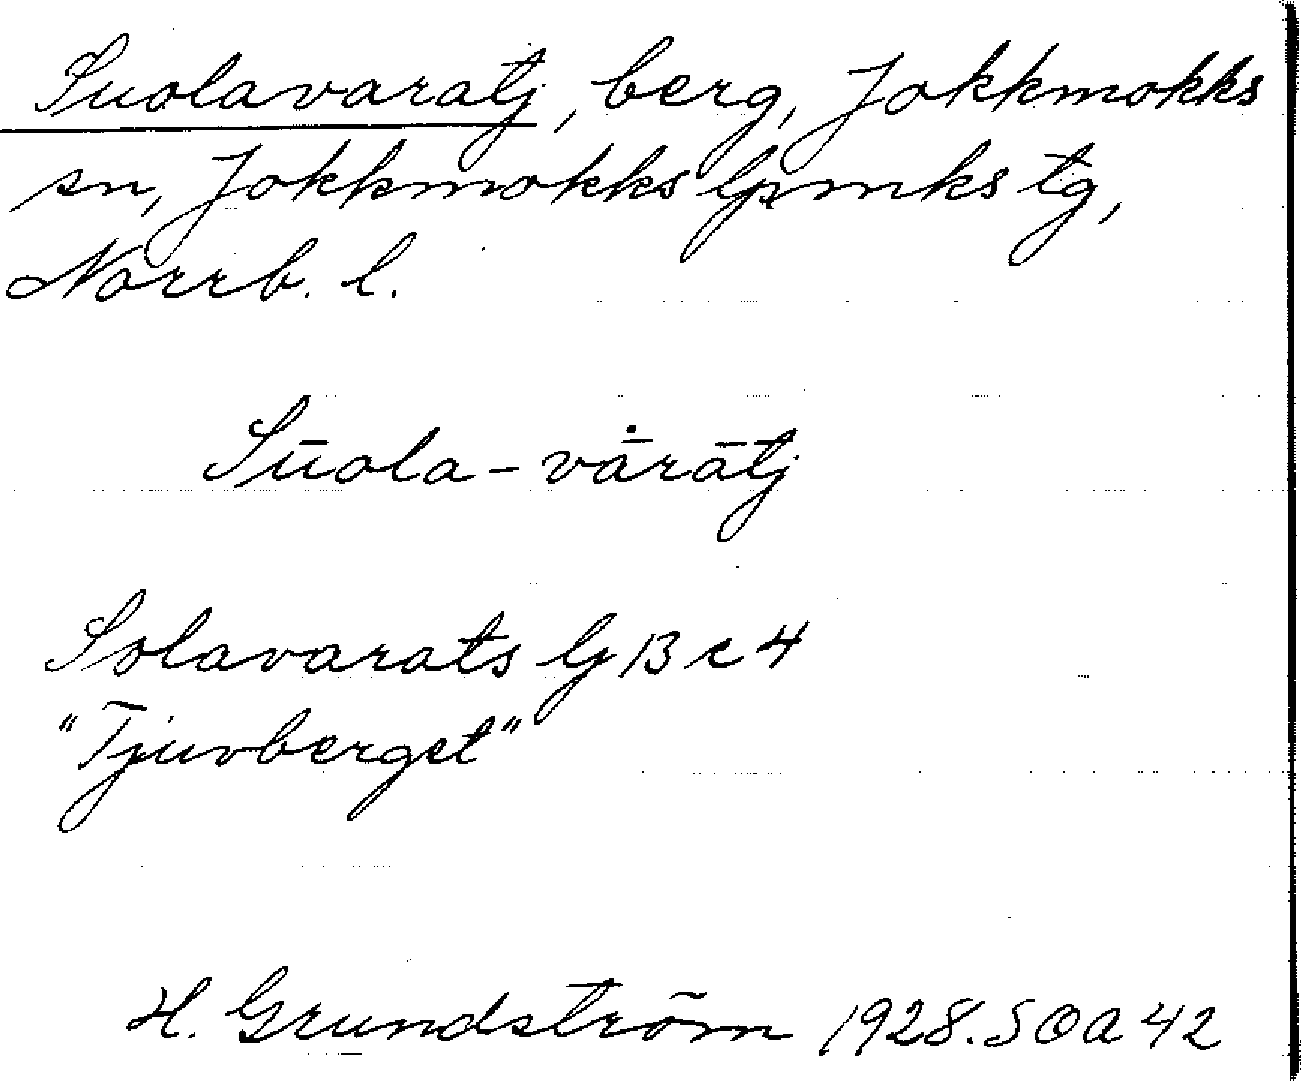 Suolavaratj, berg, Jokkmokks
sn, Jokkmokks lpmks tg,
Norrb. l.
Sūola - vā̇rātj
Solavarats Gj 13 c 4
"Tjuvberget"
H. Grundström 1928. SOA 42